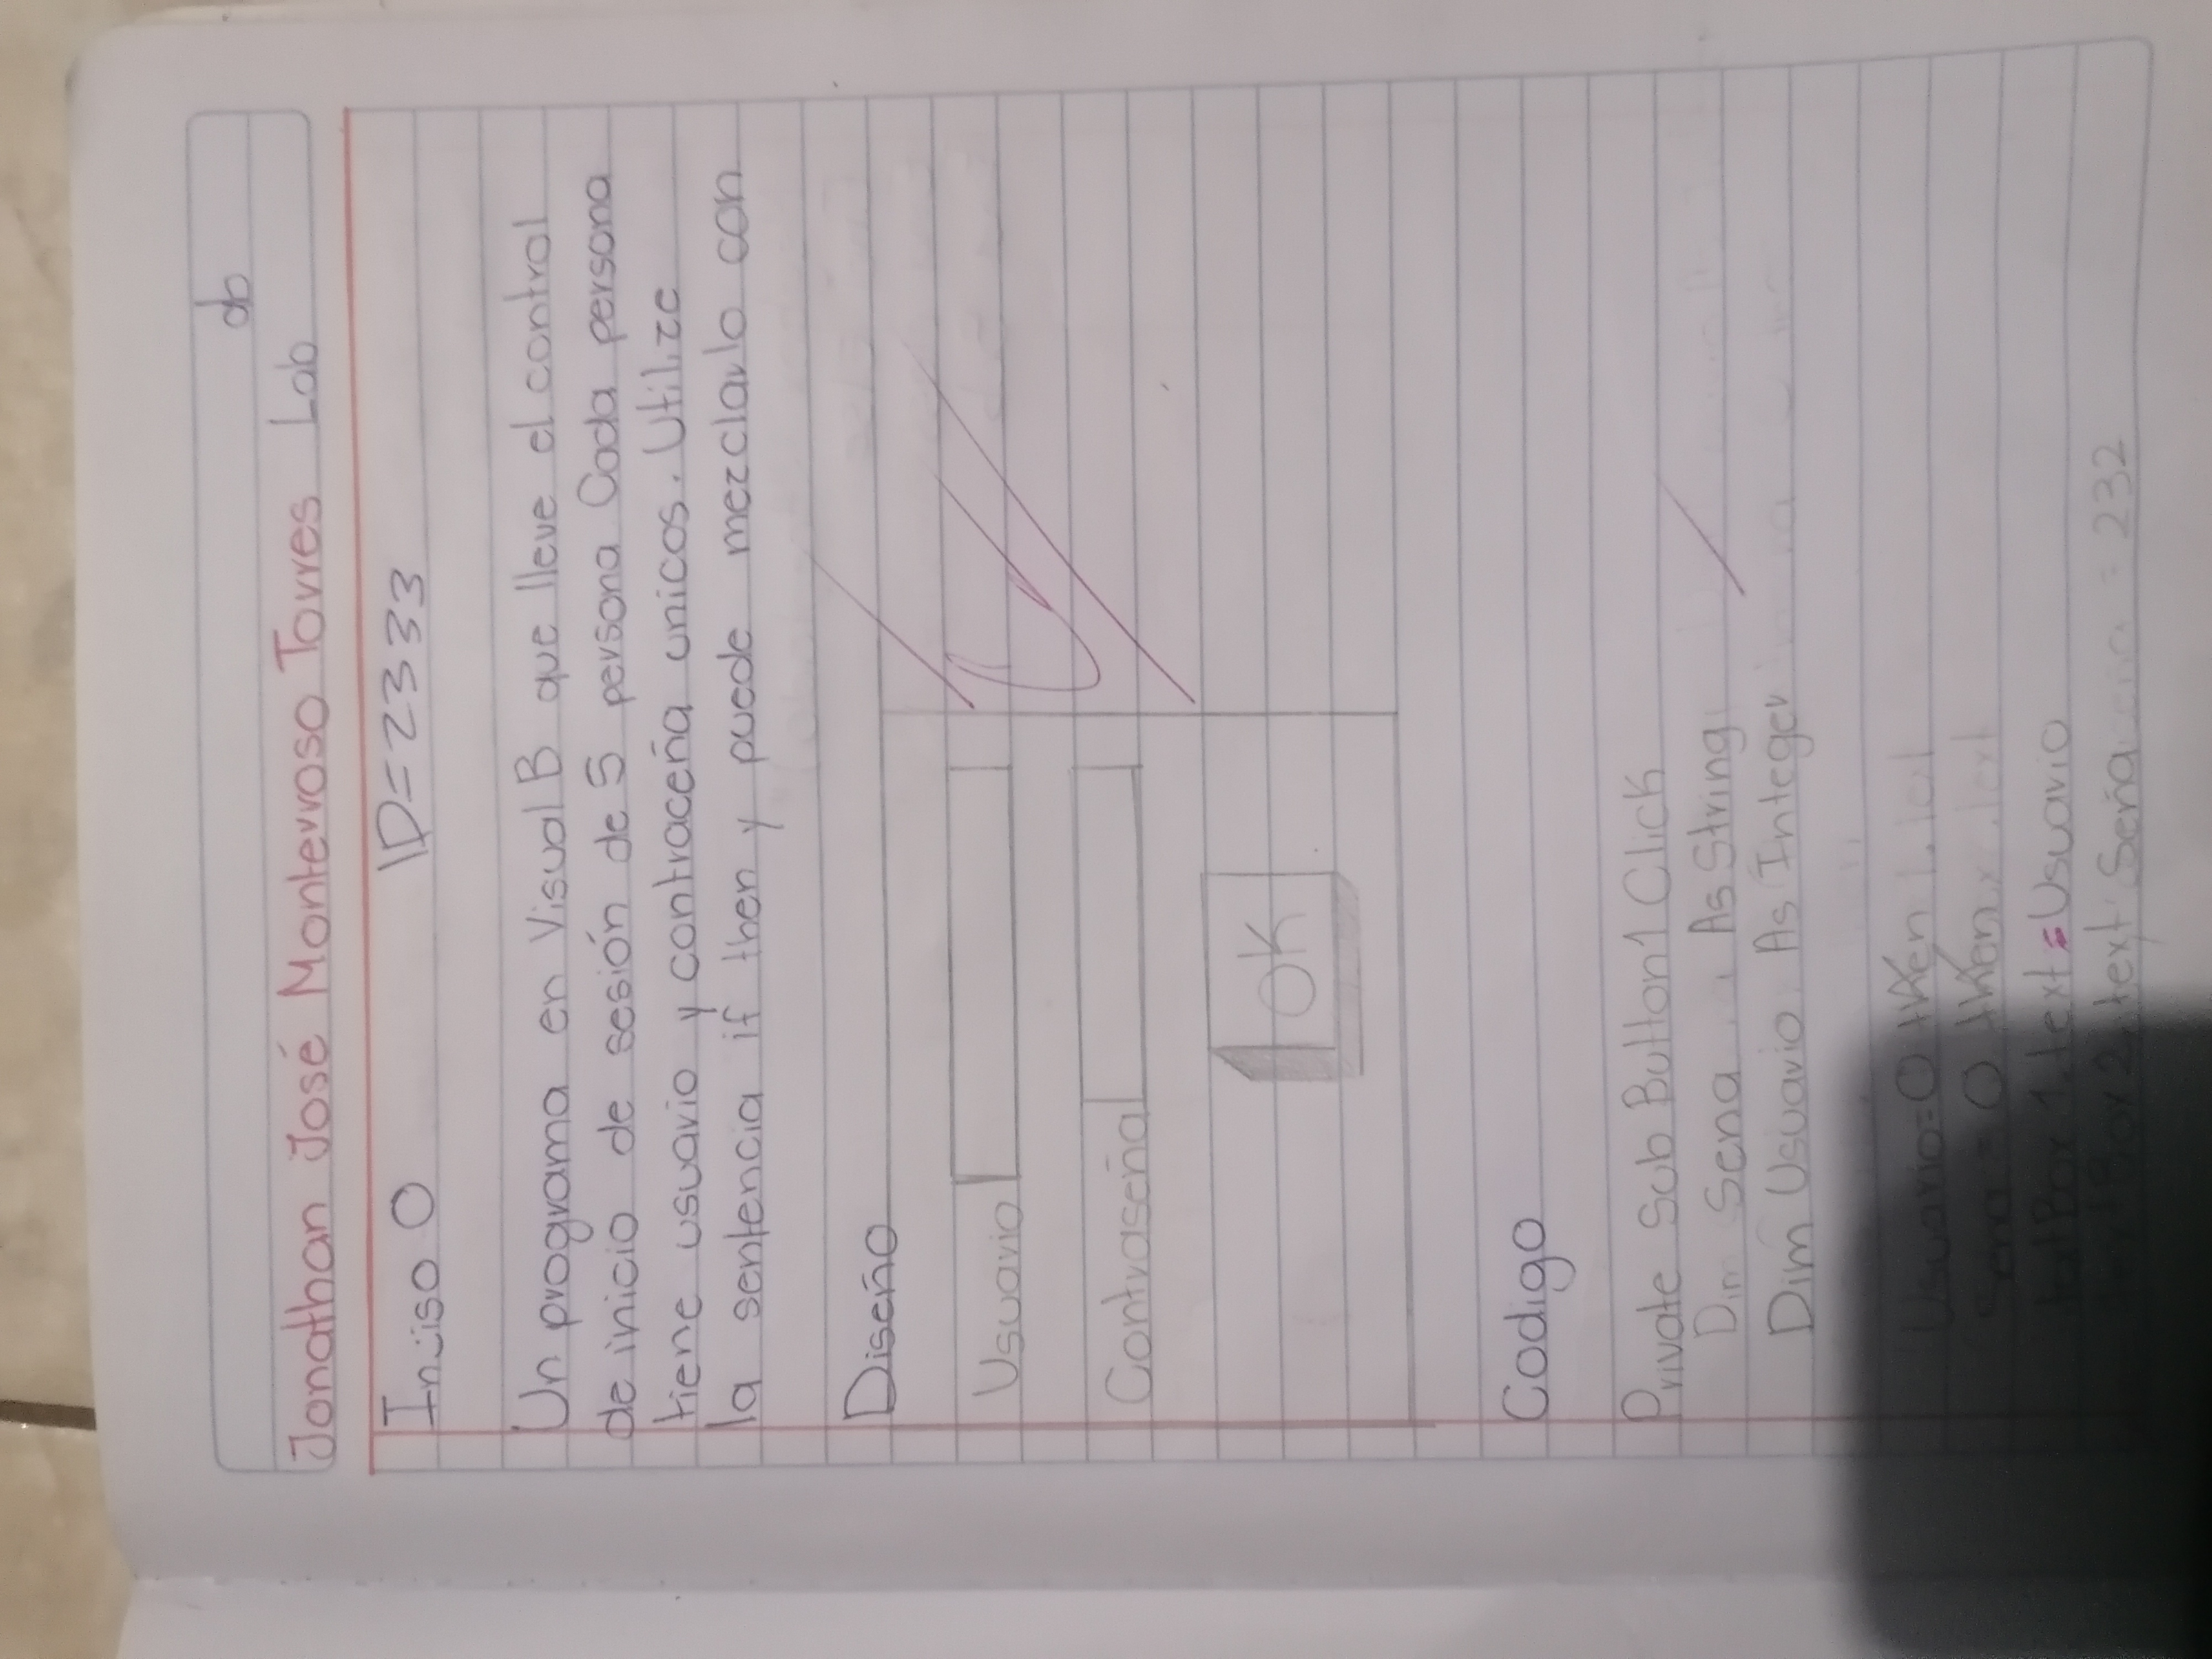 Jonathan José Montevoso Torres Lab
Inciso O ID=2333
Un programa en Visual B que lleve el control
de inicio de sesión de 5 persona Cada persona
tiene usuario y contraceña unicos. Utilize
la sentencia if then y puede mezclarlo con
Diseño
Usuario
Contraseña
OK
Codigo
Private Sub Button1 Click
Dim Seña As String
Dim Usuario As Integer
Usuario=0
=0
textBox 1.text=Usuario
text Seña = 232